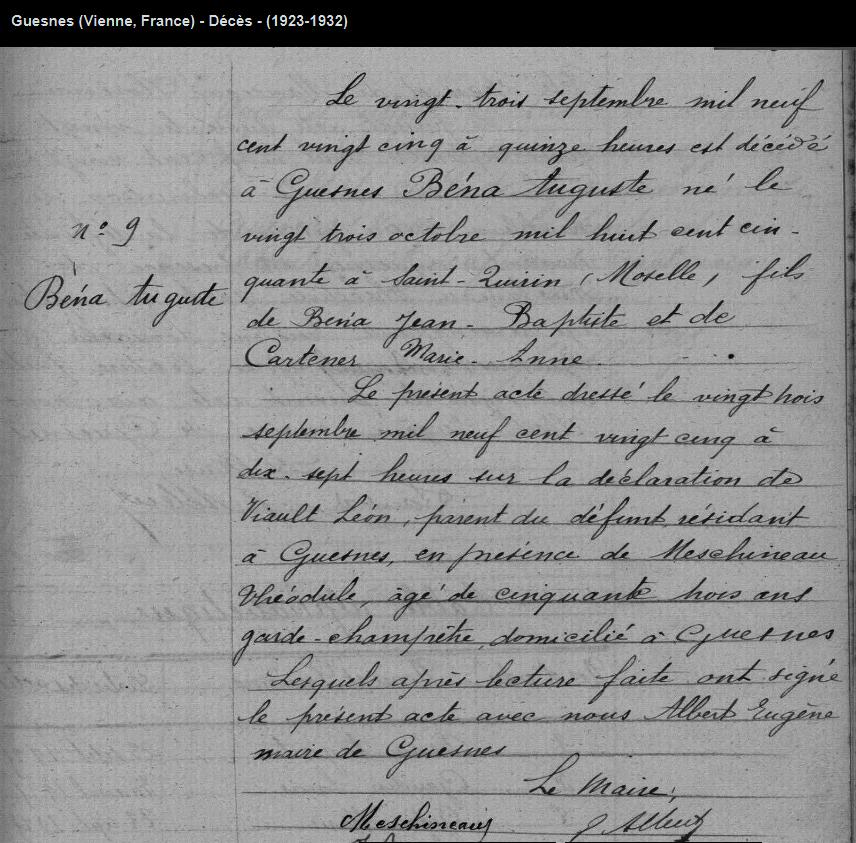 Guesnes (Vienne, France) - Décès - (1923-1932)
Le vingt-trois septembre mil neuf
cent vingt cinq à quinze heures est décédé
à Guesnes Béna Auguste né le
vingt trois octobre mil huit cent cin-
quante à Saint-Quirin (Moselle) fils
de Bena Jean-Baptiste et de
Cartener Marie-Anne.
n° 9
Béna Auguste
Le présent acte dressé le vingt trois
septembre mil neuf cent vingt cinq à
dix-sept heures sur la déclaration de
Viault Léon, parent du défunt résidant
à Guesnes, en présence de Meschineau
Théodule, âgé de cinquante trois ans
garde-champêtre, domicilié à Guesnes
Lesquels après lecture faite ont signé
le présent acte avec nous Albert Eugène
maire de Guesnes
Le Maire,
Meschineau E Albert